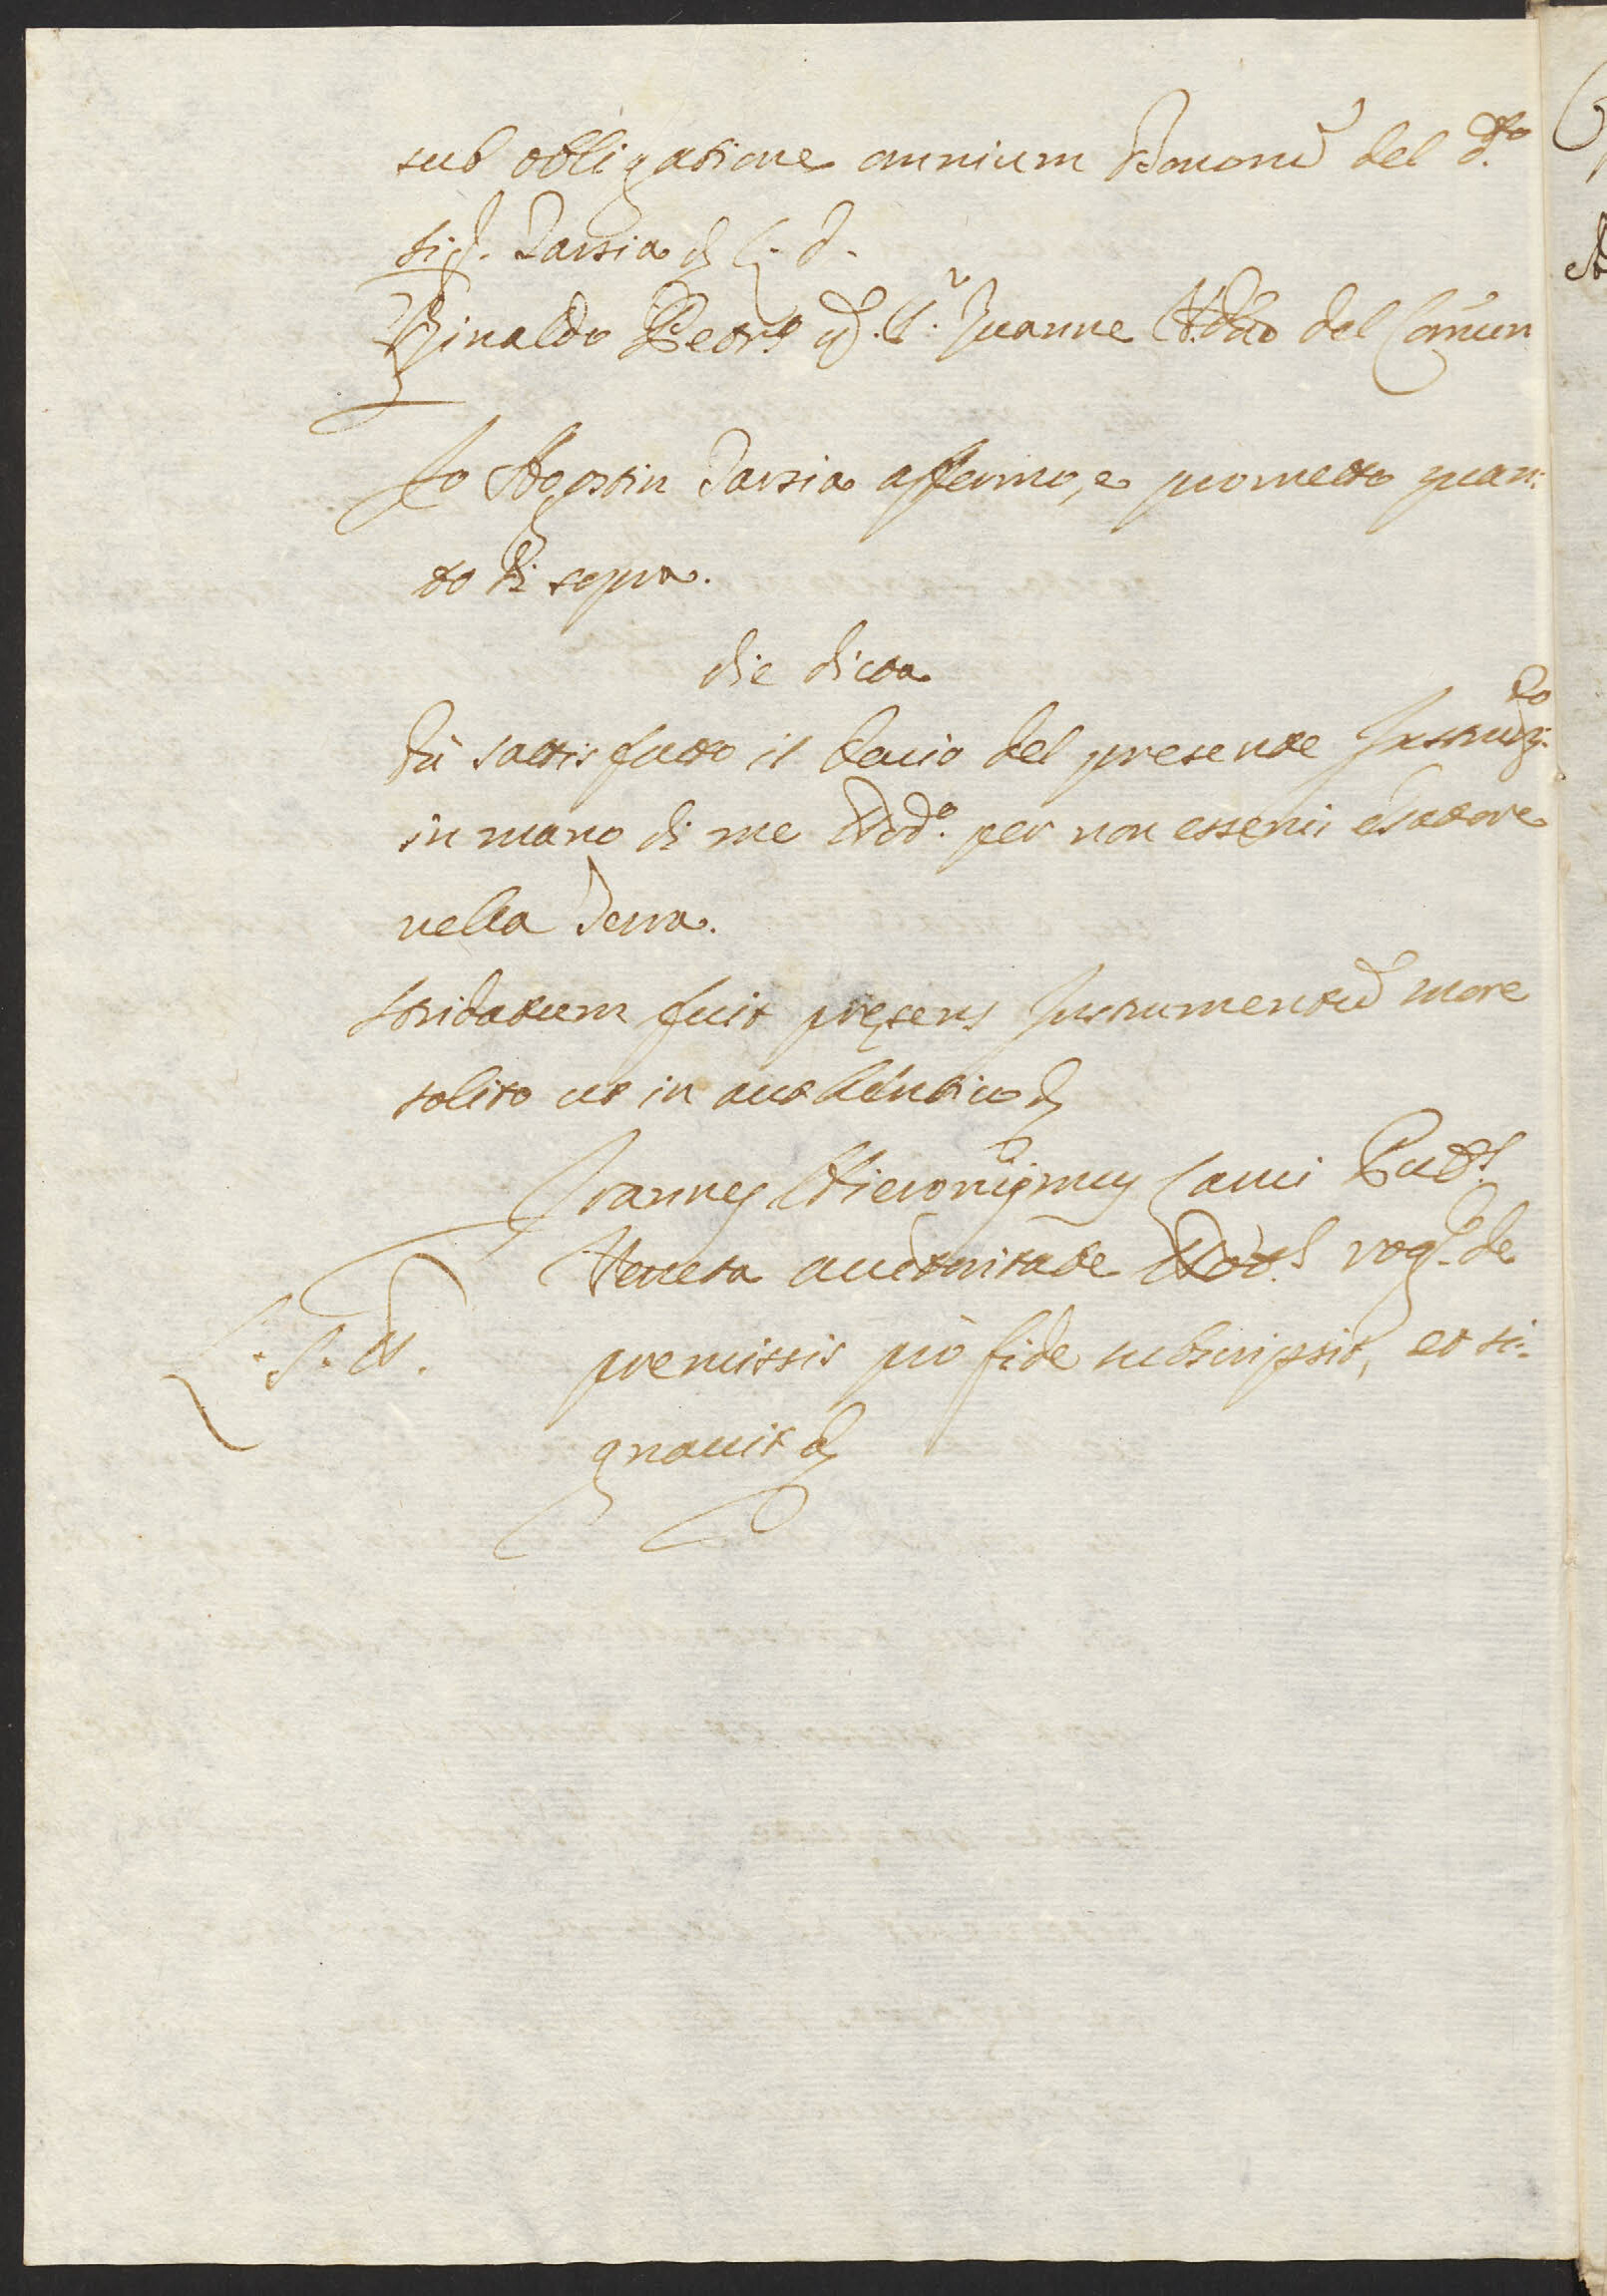 sub obligatione omnium Bonorũ del d.to
sig.r Tarsia & C. d.
Rinaldo Petr.s q. S.r Zuanne del Comun
Io Agostin Tarsia affermo, e prometto quan:
to di sopra.
die dicta
Fù sattisfatto il dacio del presente Instrum.to
in mano di me Nod.o per non esserui esatore
nella Terra.
Stridatum fuit pręsens Instrumentũ more
solito ut in authentico &
Ioannes Hieronymus Caui Pub.s
Veneta auctoritate Not.s rog.s de
premissis prò fide subscripsit, et si:
L. S. N.
gnauit &